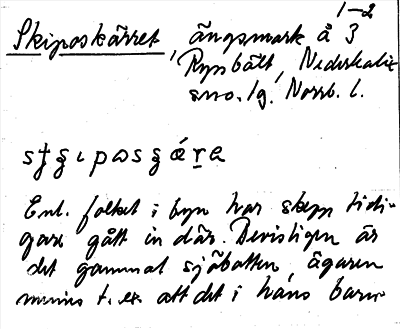 1-2
Skiposkärret, ängsmark å 3
Rysbält, Nederkalix
sn o. lg. Norrb. l.
Enl. folket i byn har skepp tidi-
gare gått in där. Devistigen är
det gammal sjöbotten, ägaren
minns t. ex. att det i hans barn-